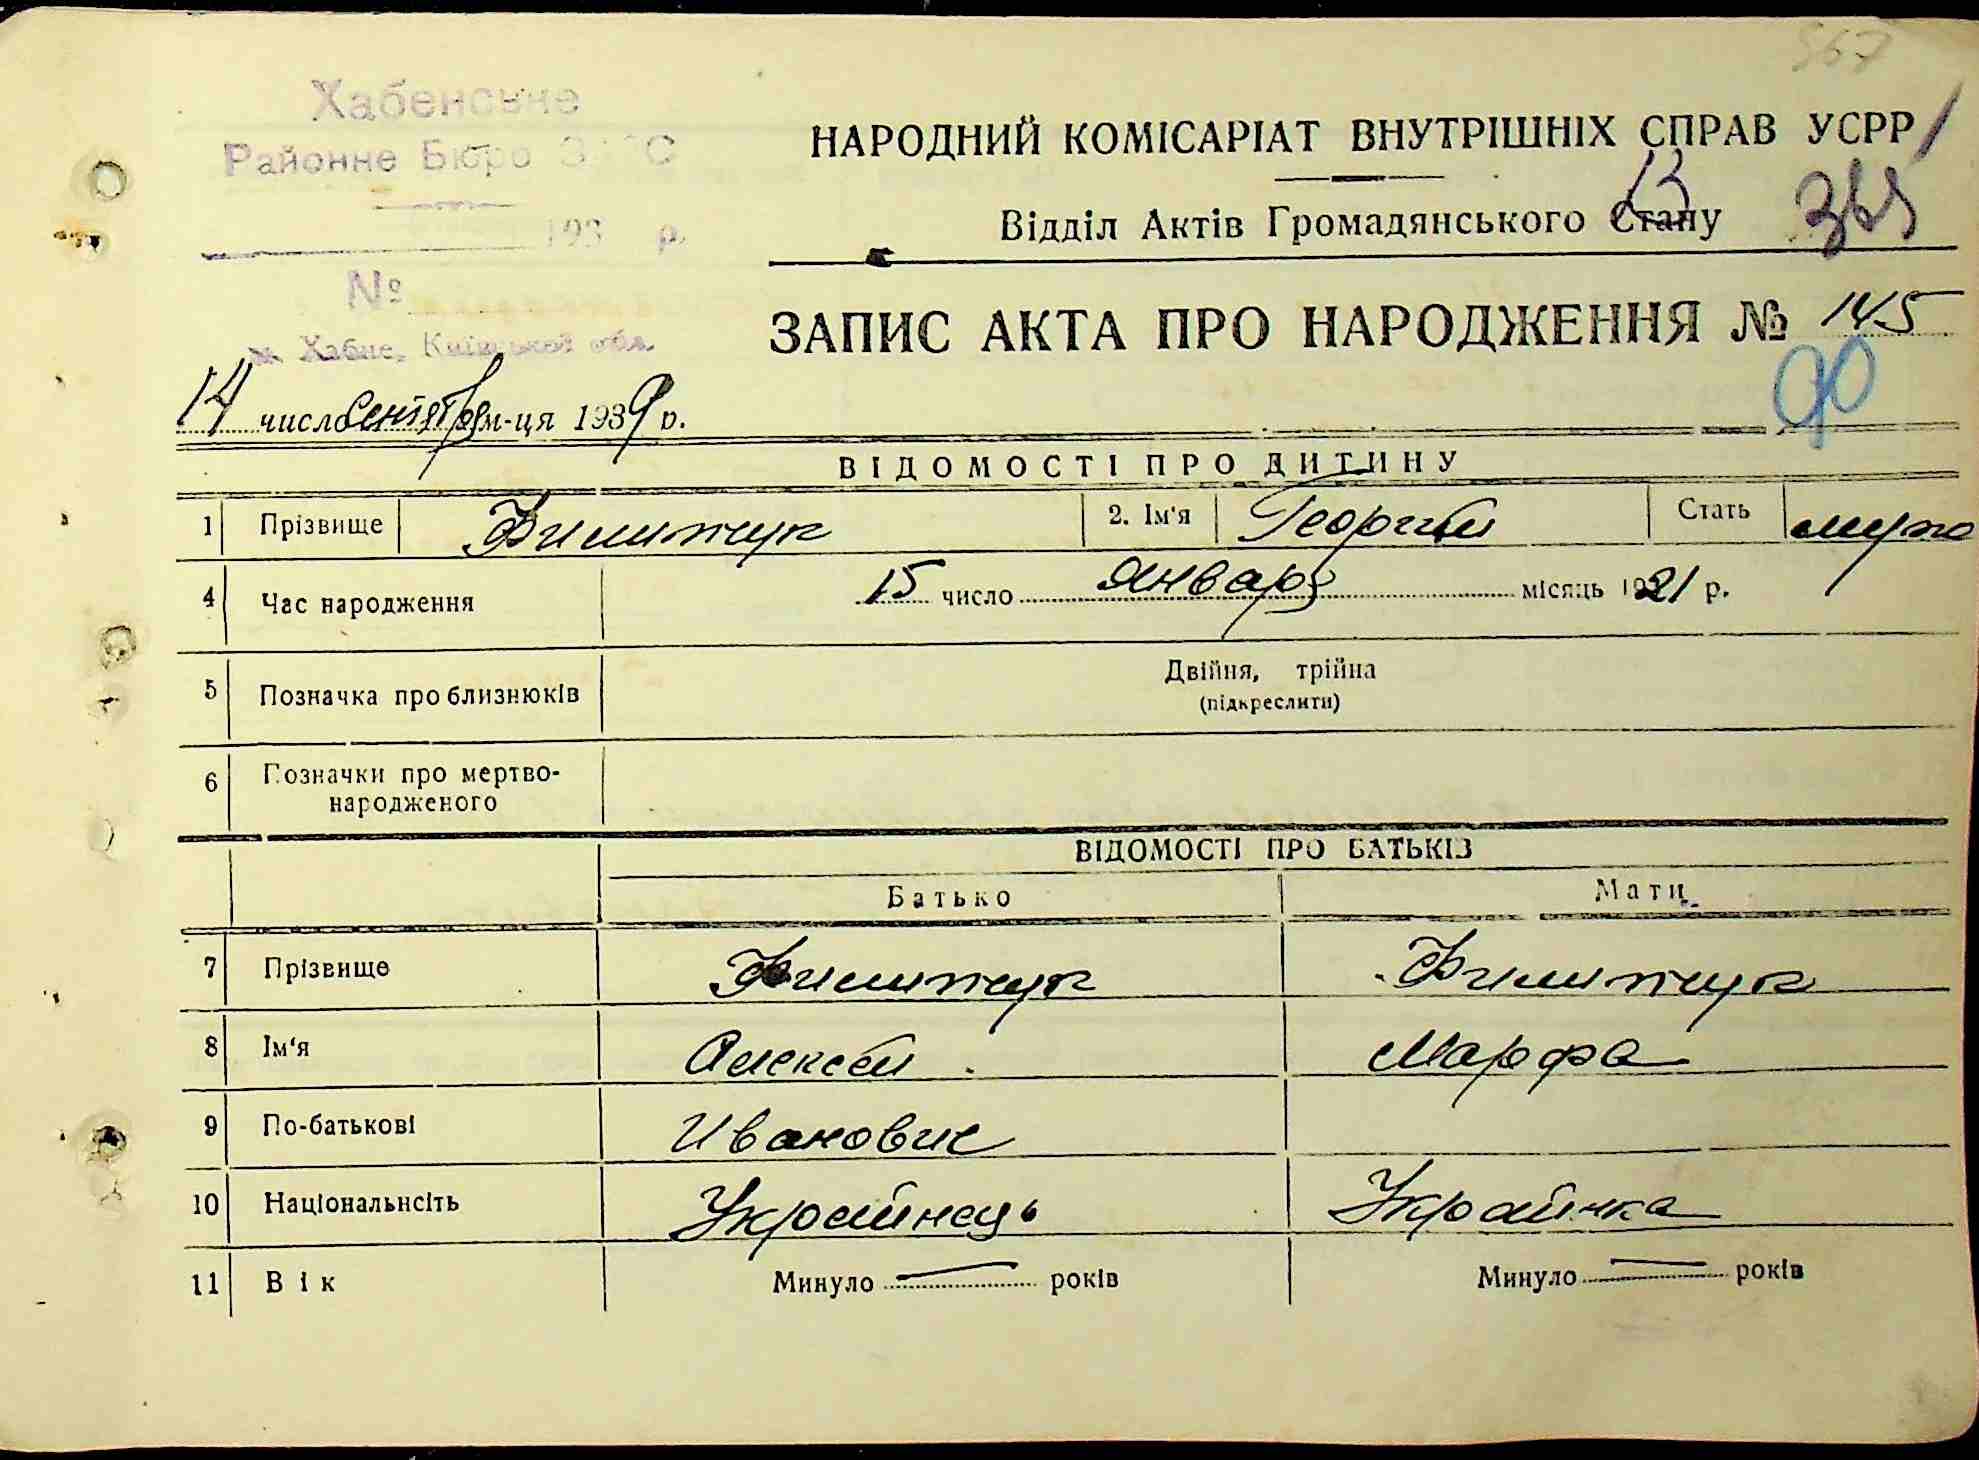 567
Хабенське
Районне Бюро ЗАГС
193 р.
№
м. Хабне, Київської обл.
НАРОДНИЙ КОМІСАРІАТ ВНУТРІШНІХ СПРАВ УСРР
Відділ Актів Громадянського Стану
13
365
ЗАПИС АКТА ПРО НАРОДЖЕННЯ № 145
90
14 число сентября м-ця 1939 р.
ВІДОМОСТІ ПРО ДИТИНУ
1 Прізвище Филипчук 2. Ім'я Георгий Стать муж
4 Час народження 15 число января місяць 1921 р.
5 Позначка про близнюків Двійня, трійна
(підкреслити)
6 Позначки про мертво-
народженого
ВІДОМОСТІ ПРО БАТЬКІВ
Батько Мати
7 Прізвище Филипчук Филипчук
8 Ім'я Алексей Марфа
9 По-батькові Иванович
10 Національнсіть Украйнець Украйнка
11 Вік Минуло — років Минуло — років